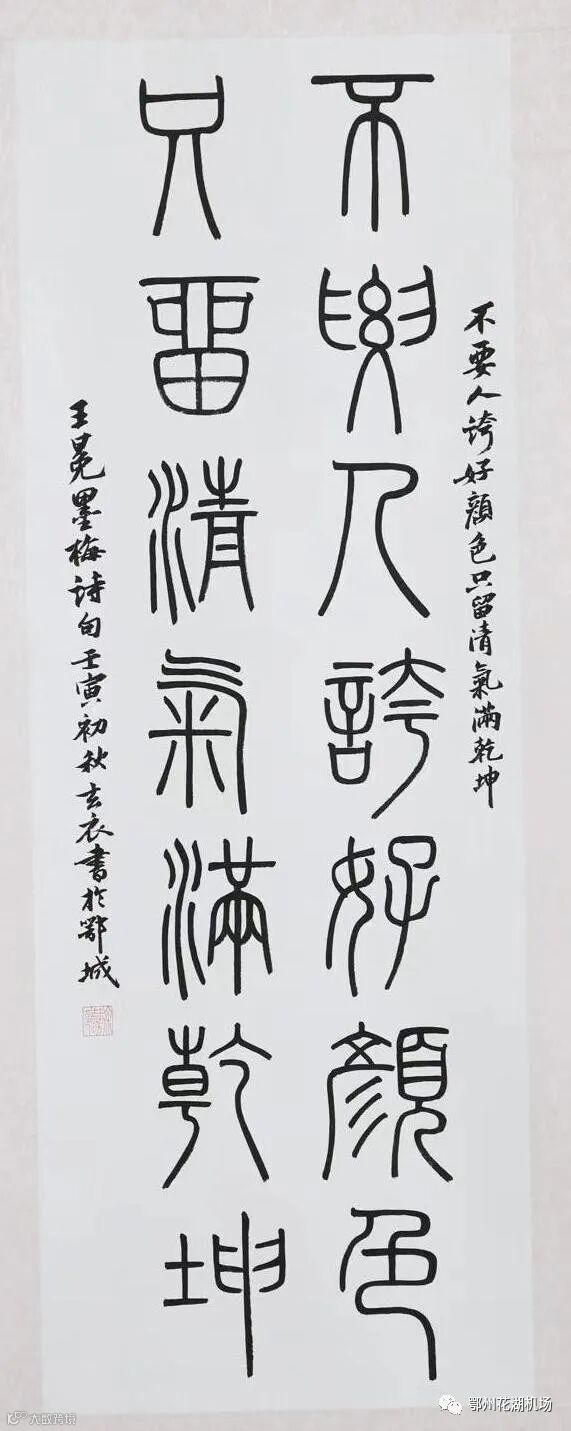 不要人夸好顔色只留清氣滿乾坤
不要人誇好顔色
只畱清氣滿乾坤
王冕墨梅詩句壬寅初秋玄衣書於鄂城
鄂州花湖机场
大数跨境